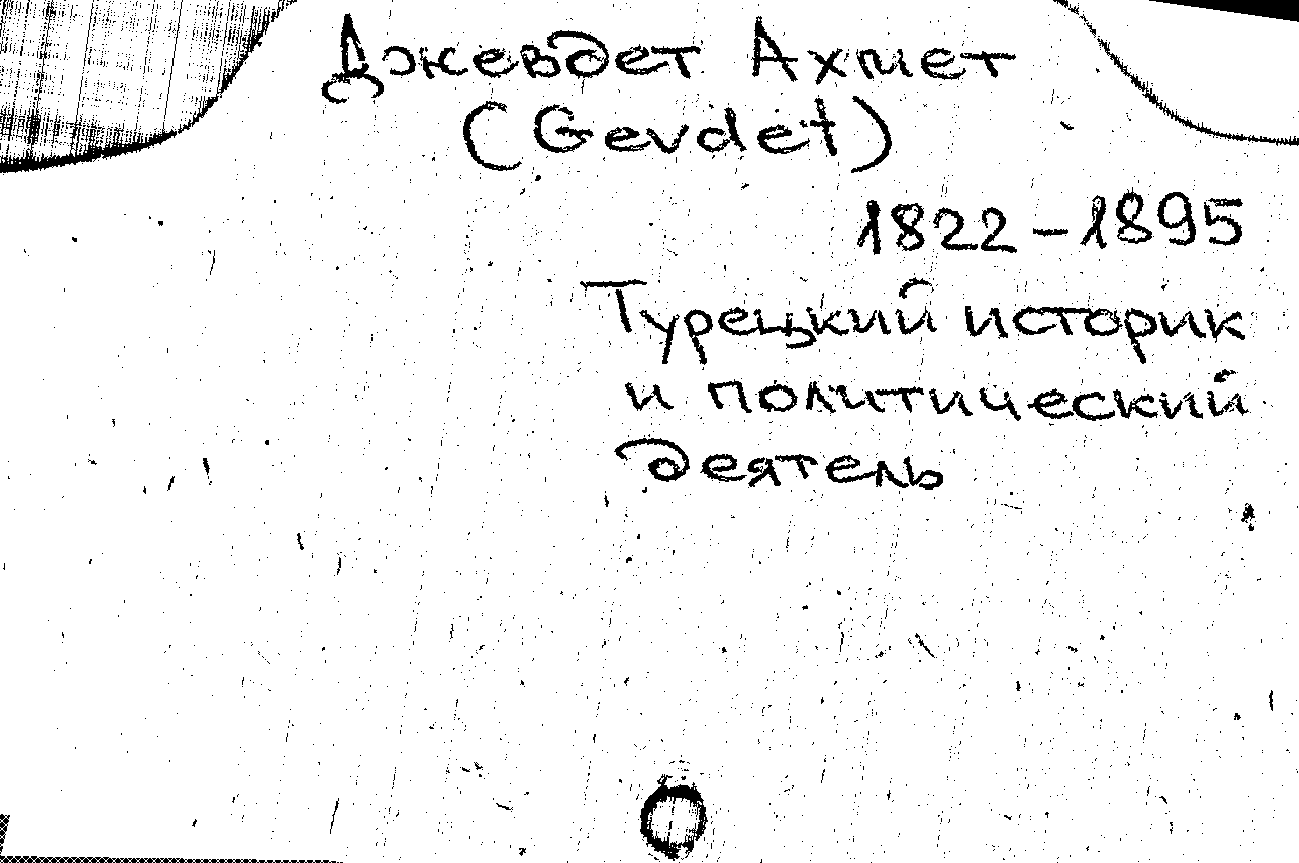 Джевдет Ахмет
(Gevdet)
1822 – 1895
Турецкий историк
и политический
деятель